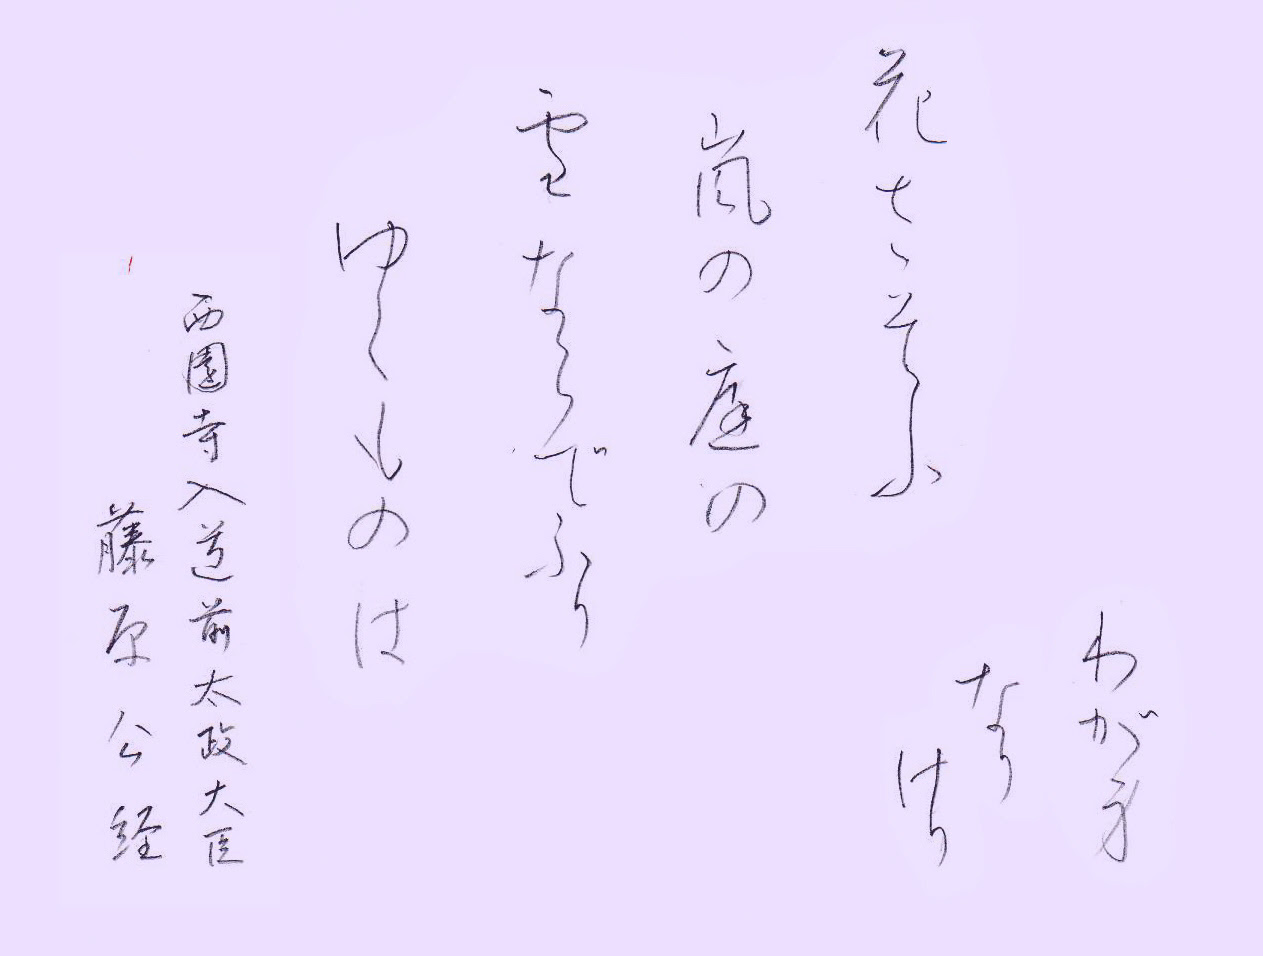 花さそふ
嵐の庭の
雪ならでふり
ゆくものは
わが身
なり
けり
西園寺入道前太政大臣
藤原公経